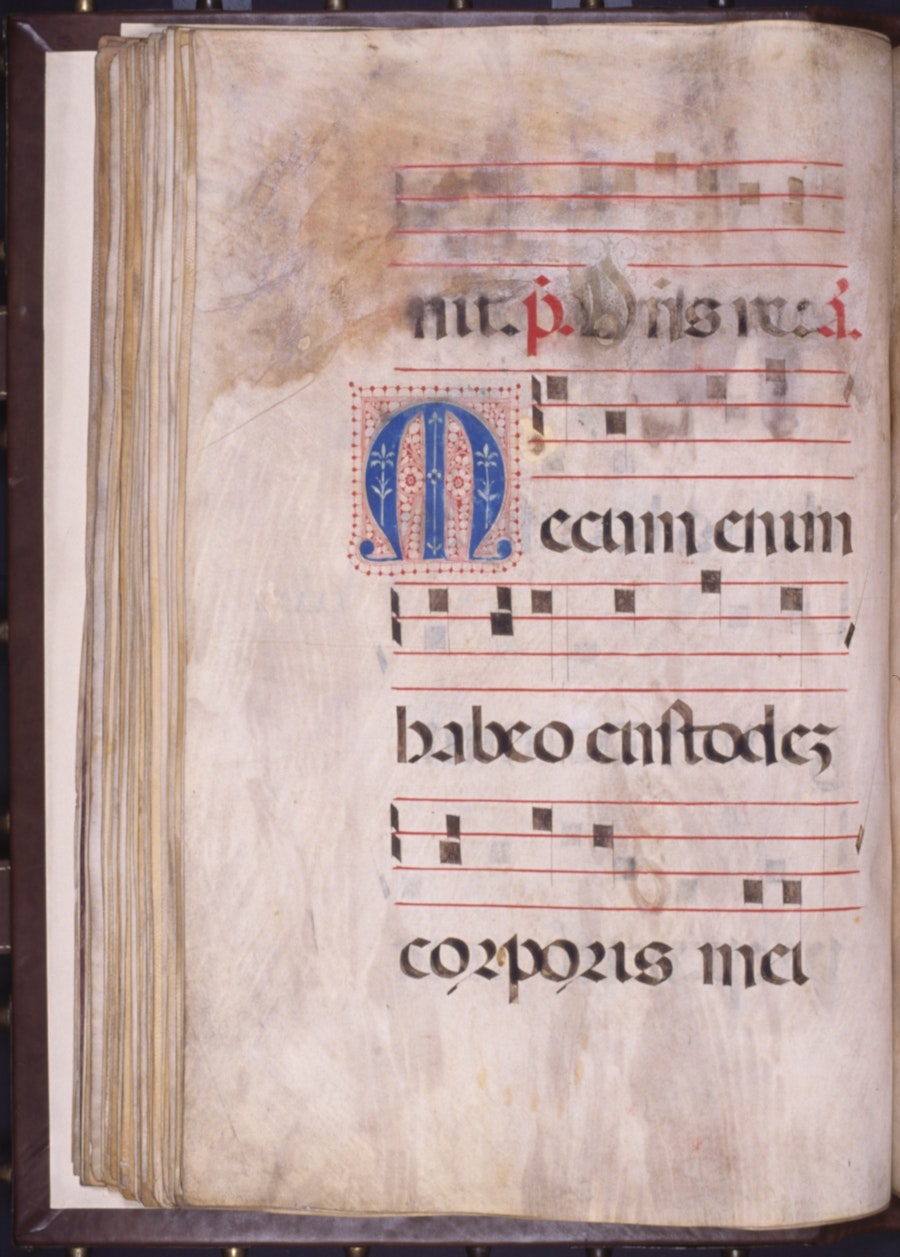 nit. p̄. Dñs re: a᷑.
Mecum enim
habeo custodez
corporis mei